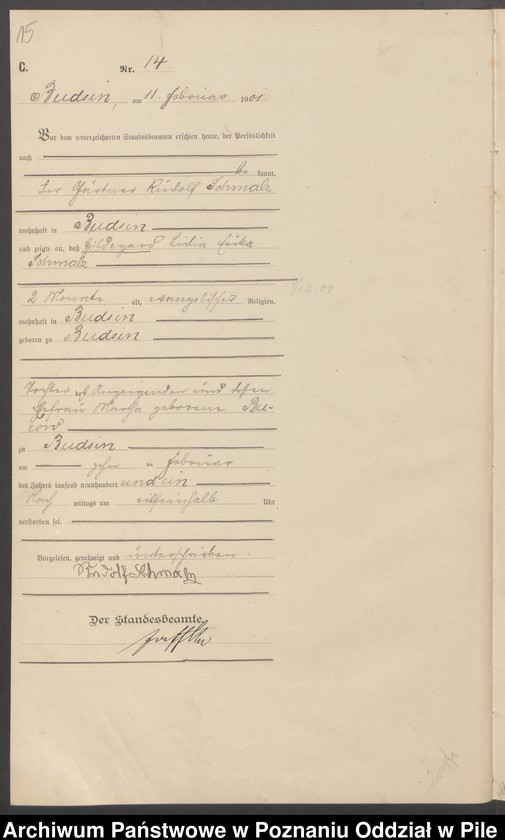 15
C. Nr. 14
Budsin, am 11. Februar 1901
Vor dem unterzeichneten Standesbeamten erschien heute, der Persönlichkeit
nach
be kannt,
der Gärtner Rudolf Schmalz
wohnhaft in Budsin
und zeigte an, daß Hildegard Lidia Erika
Schmalz
2 Monate alt, evangelischer Religion,
wohnhaft in Budsin
geboren zu Budsin
Tochter des Anzeigenden und dessen
Ehefrau Martha geborene
zu Budsin
am zehn ten Februar
des Jahres tausend neunhundert und ein
Nach mittags um Uhr
verstorben sei.
Vorgelesen, genehmigt und unterschrieben.
Rudolf Schmalz
Der Standesbeamte.
Archiwum Państwowe w Poznaniu Oddział w Pile